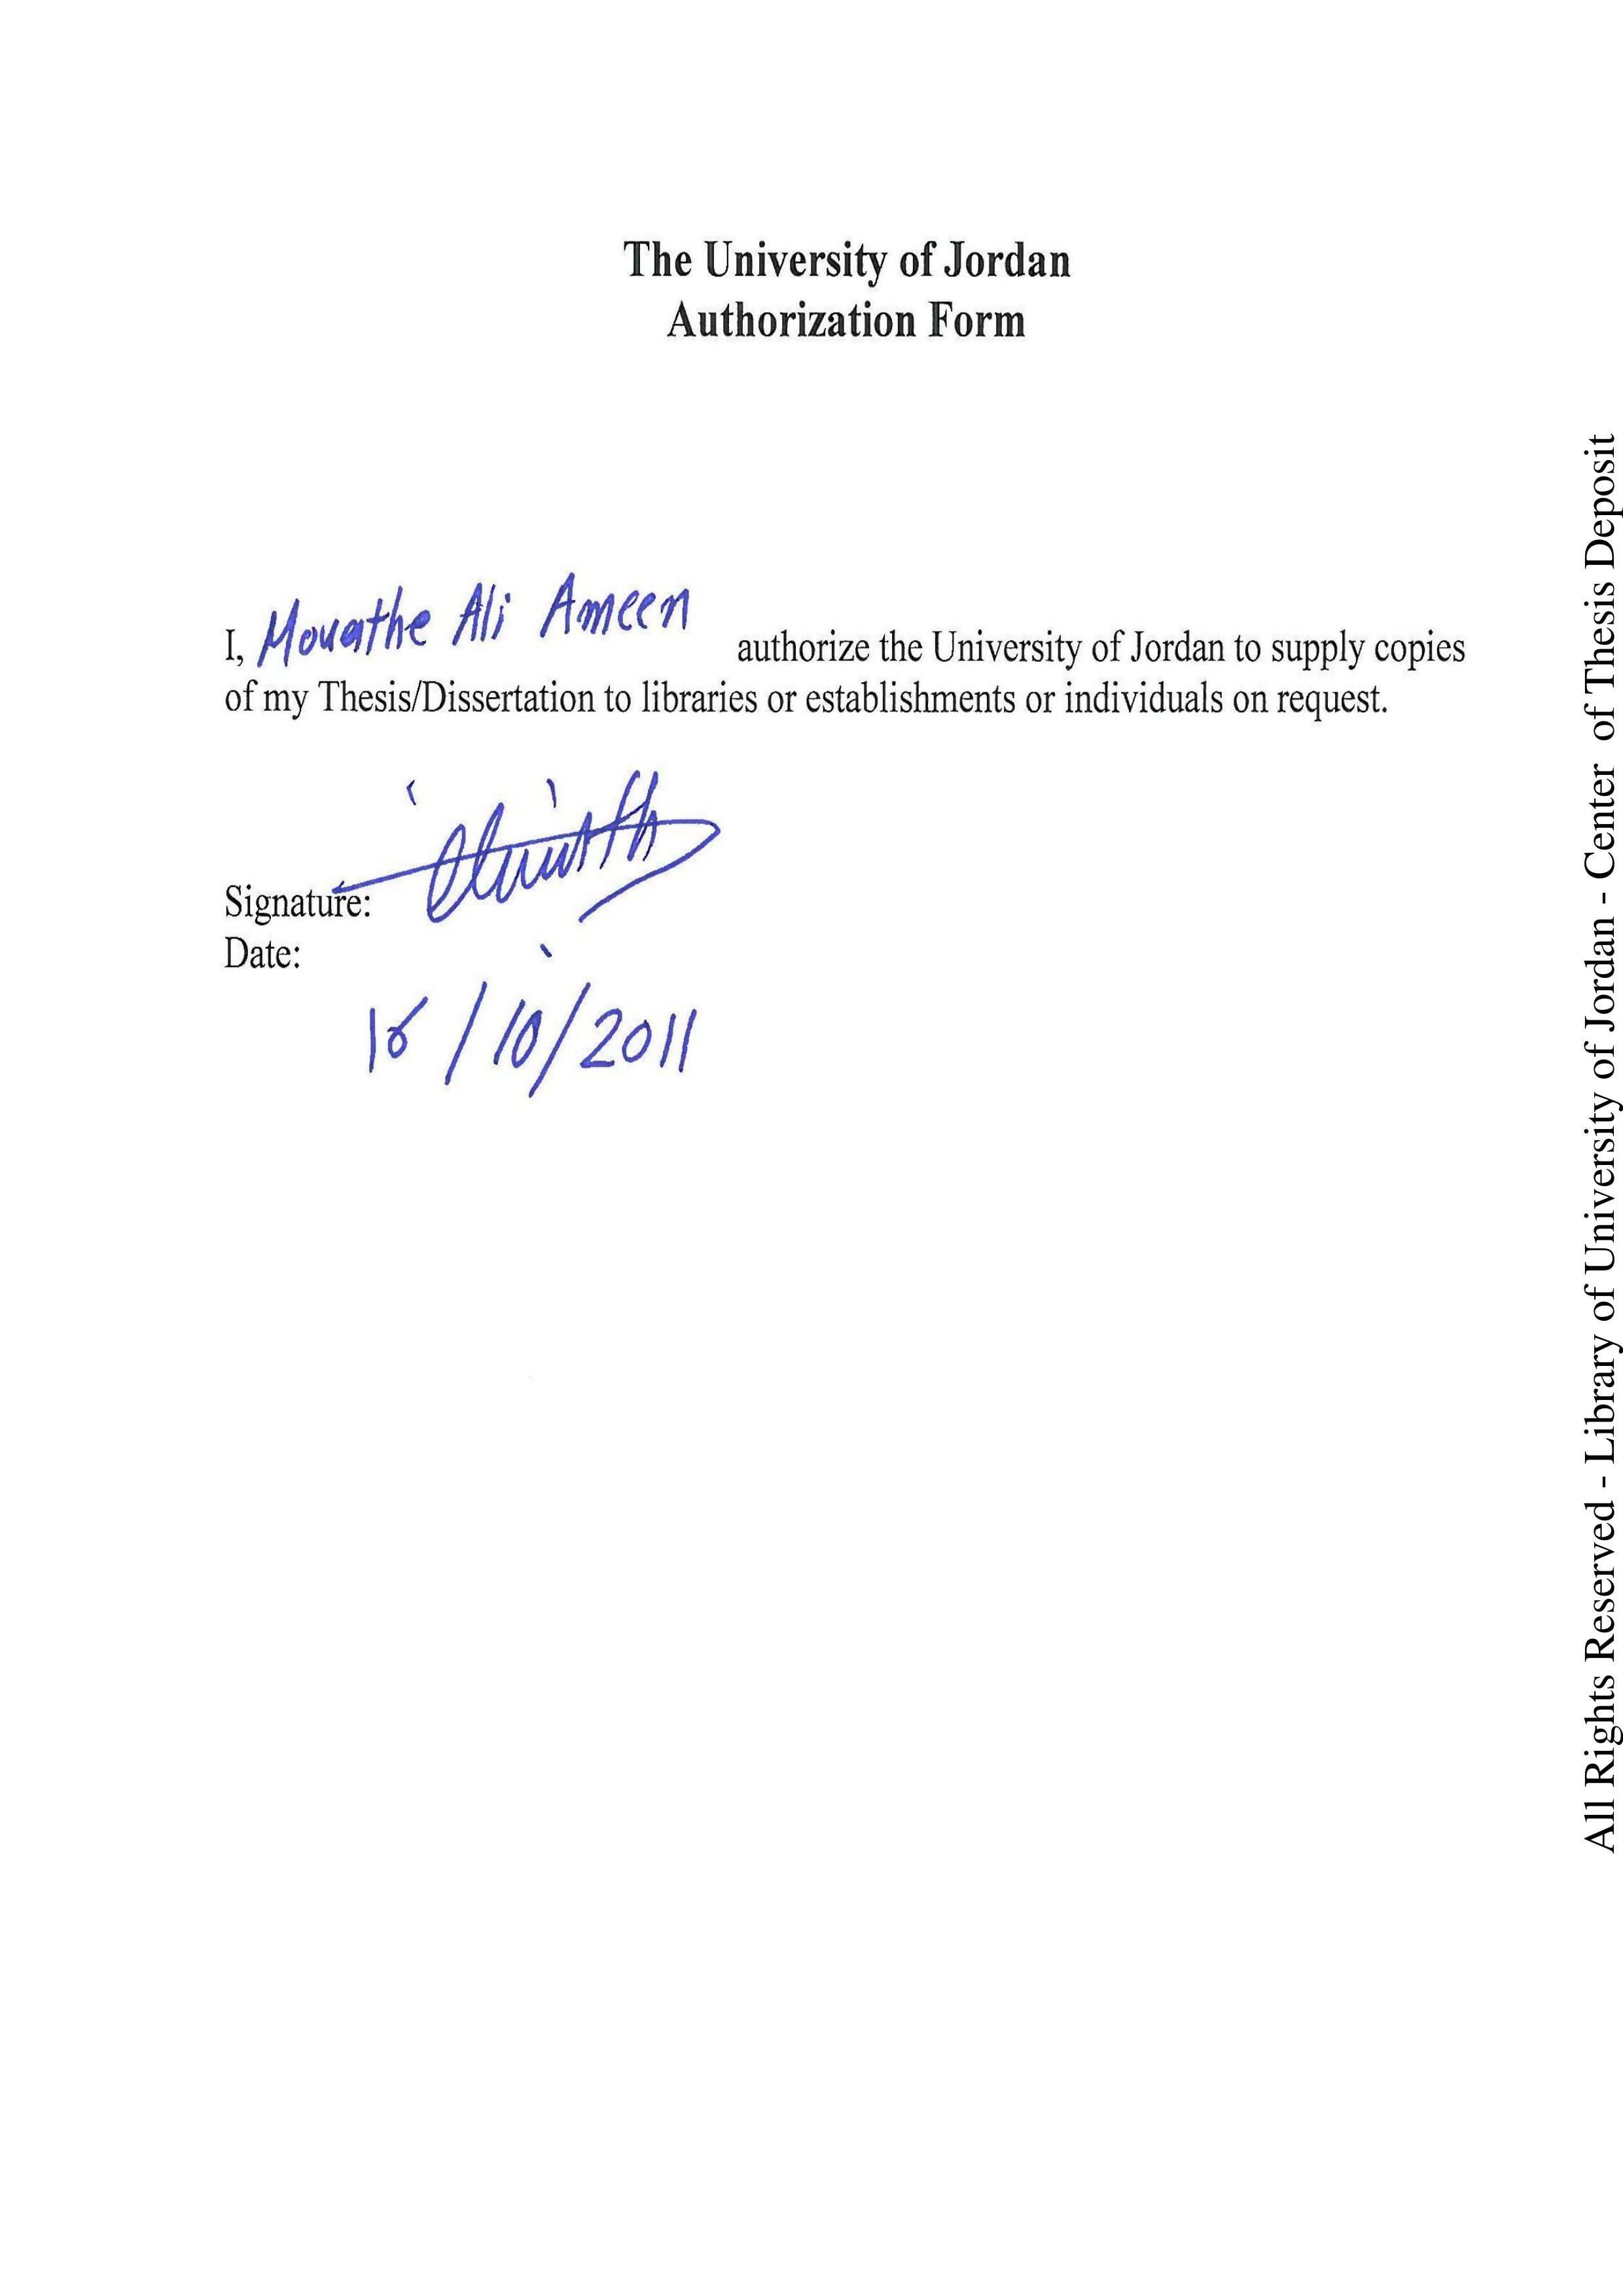 The University of Jordan
Authorization Form
I, Mouathe Ali Ameen authorize the University of Jordan to supply copies
of my Thesis/Dissertation to libraries or establishments or individuals on request.
Signature:
Date:
16/10/2011
All Rights Reserved - Library of University of Jordan - Center of Thesis Deposit